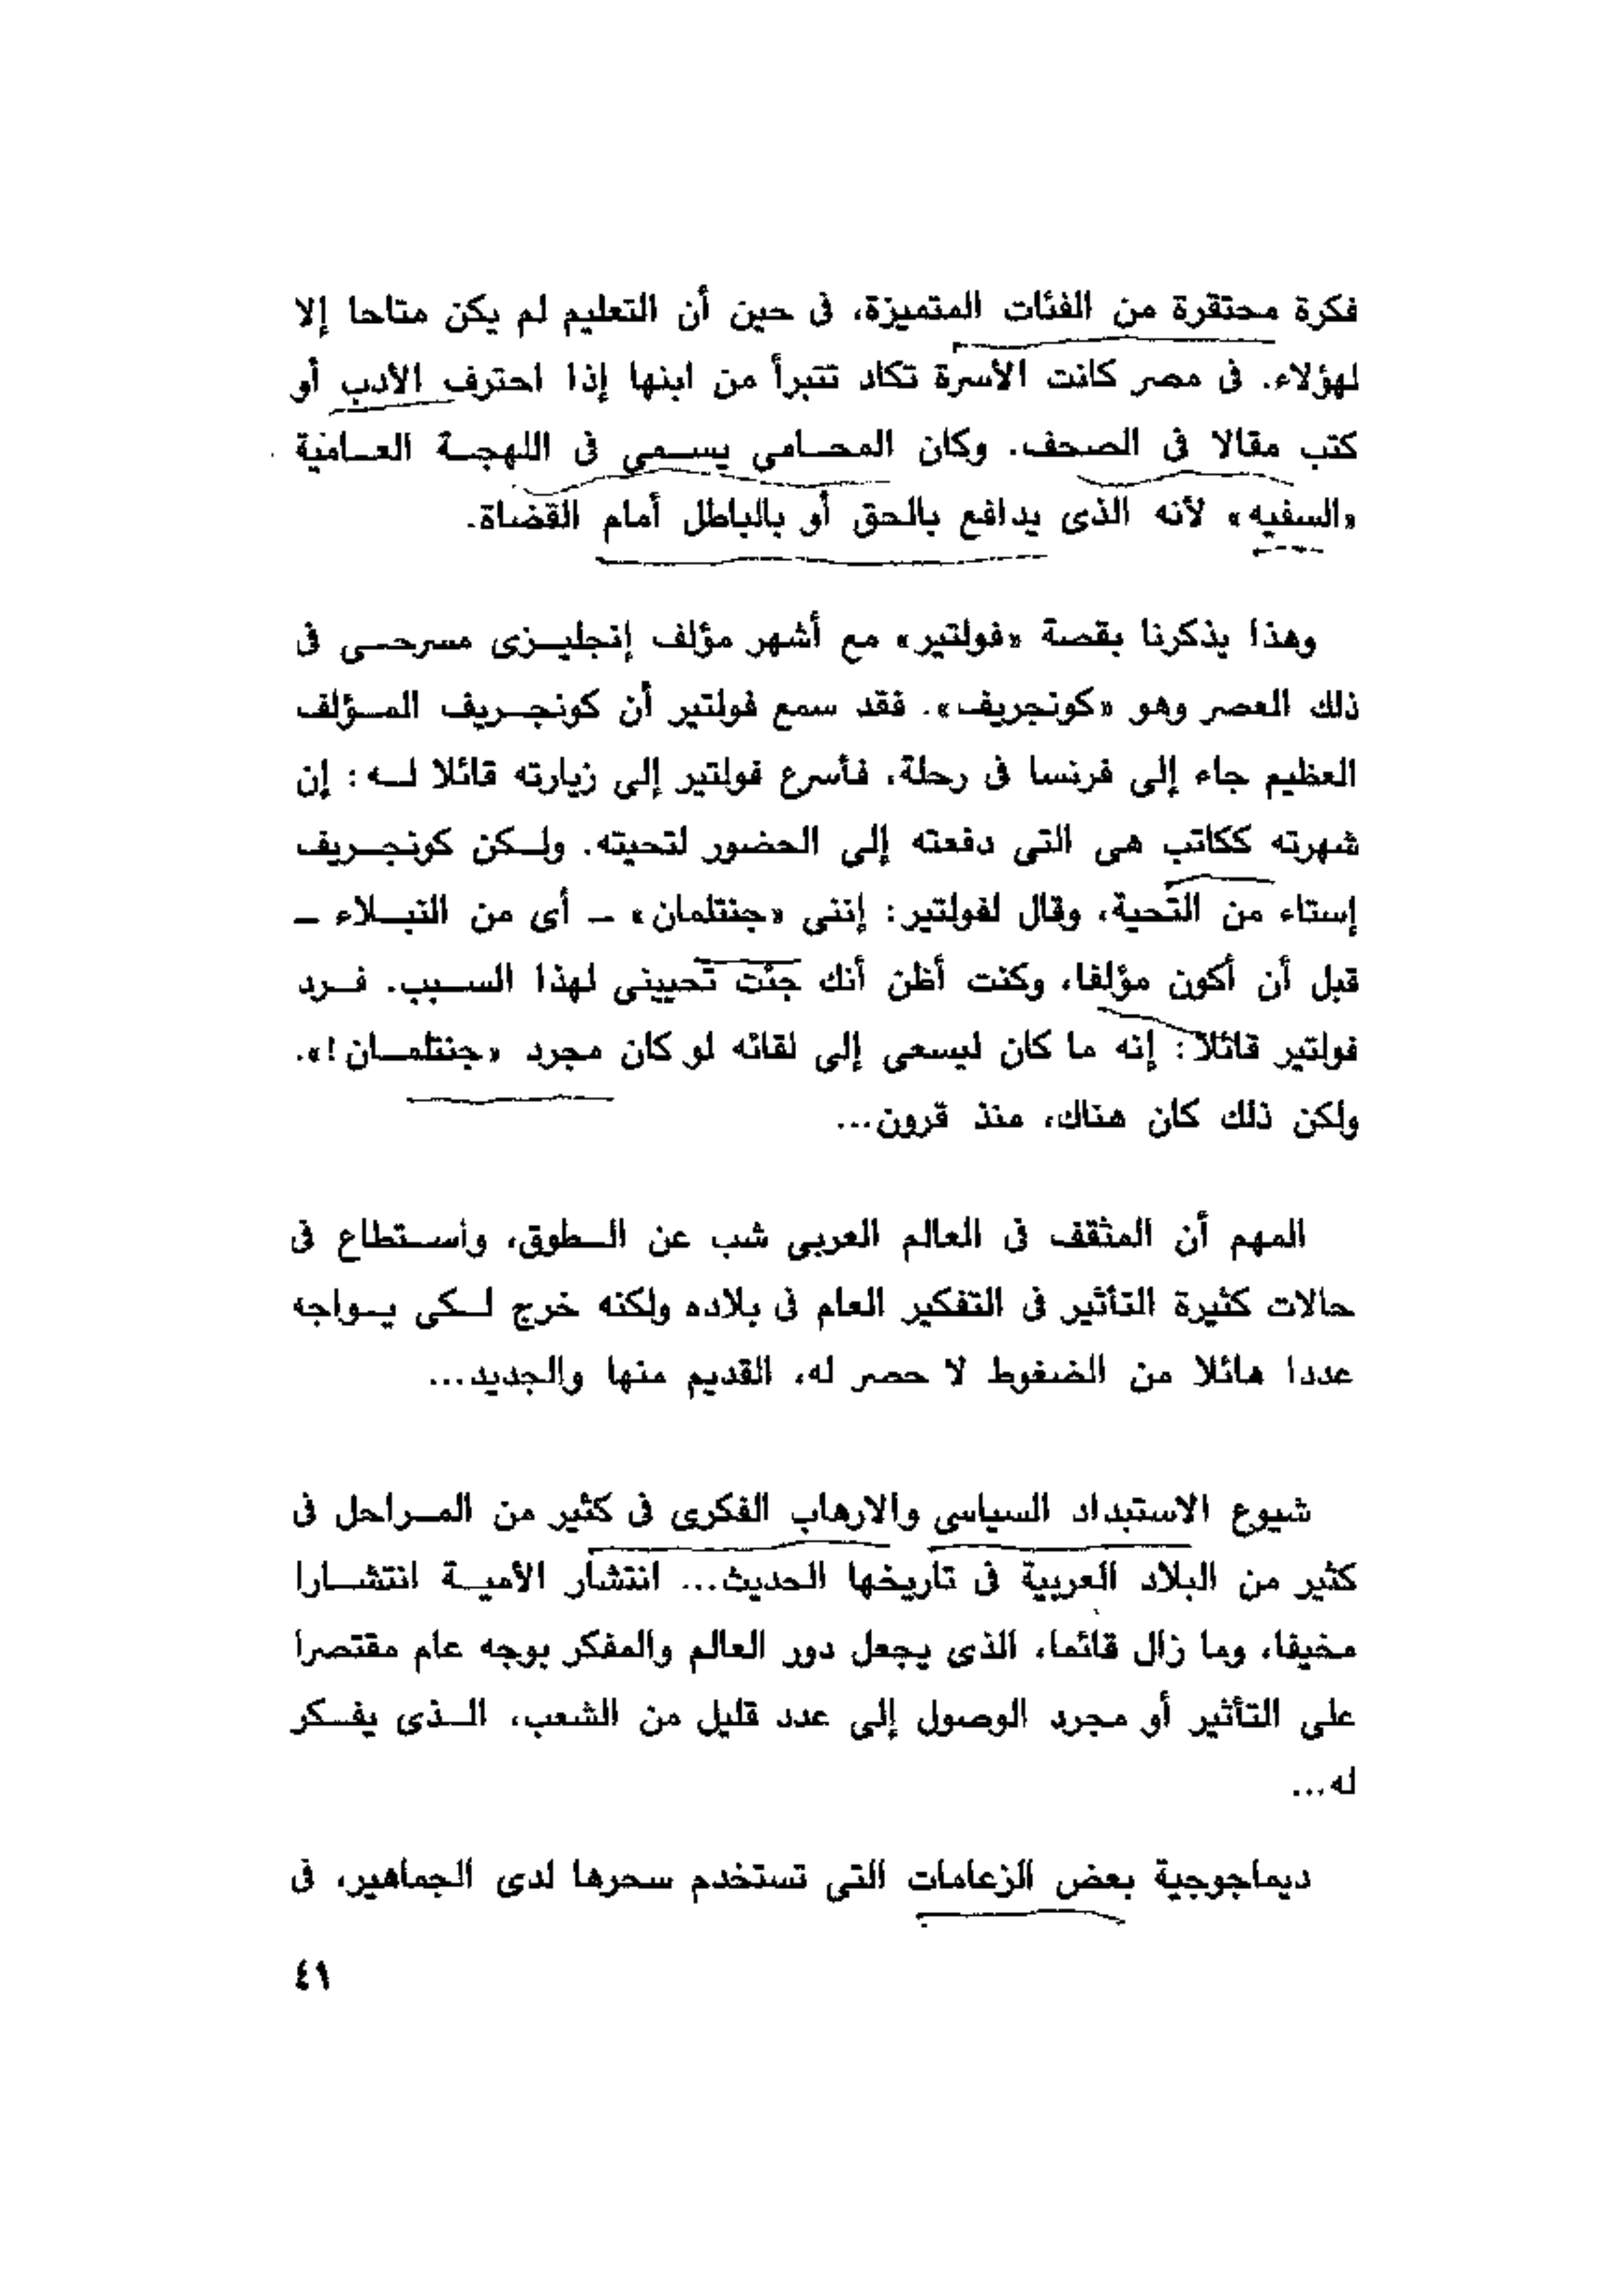 فكرة محتقرة من الفئات المتميزة، فى حين أن التعليم لم يكن متاحا إلا
لهؤلاء. فى مصر كانت الأسرة تكاد تتبرأ من ابنها إذا احترف الأدب أو
كتب مقالا فى الصحف. وكان المحامى يسمى فى اللهجة العامية
«السفيه» لأنه الذى يدافع بالحق أو بالباطل أمام القضاة.
وهذا يذكرنا بقصة «فولتير» مع أشهر مؤلف إنجليزى مسرحى فى
ذلك العصر وهو «كونجريف». فقد سمع فولتير أن كونجريف المؤلف
العظيم جاء إلى فرنسا فى رحلة، فأسرع فولتير إلى زيارته قائلا له : إن
شهرته ككاتب هى التى دفعته إلى الحضور لتحيته. ولكن كونجريف
إستاء من التحية، وقال لفولتير : إننى «جنتلمان» – أى من النبلاء –
قبل أن أكون مؤلفا، وكنت أظن أنك جئت تحيينى لهذا السبب. فرد
فولتير قائلا : إنه ما كان ليسعى إلى لقائه لو كان مجرد «جنتلمان !».
ولكن ذلك كان هناك، منذ قرون...
المهم أن المثقف فى العالم العربى شب عن الطوق، واستطاع فى
حالات كثيرة التأثير فى التفكير العام فى بلاده ولكنه خرج لكى يواجه
عددا هائلا من الضغوط لا حصر له، القديم منها والجديد...
شيوع الاستبداد السياسى والارهاب الفكرى فى كثير من المراحل فى
كثير من البلاد العربية فى تاريخها الحديث... انتشار الأمية انتشارا
مخيفا، وما زال قائما، الذى يجعل دور العالم والمفكر بوجه عام مقتصرا
على التأثير أو مجرد الوصول إلى عدد قليل من الشعب، الذى يفكر
له...
ديماجوجية بعض الزعامات التى تستخدم سحرها لدى الجماهير، فى
٤١